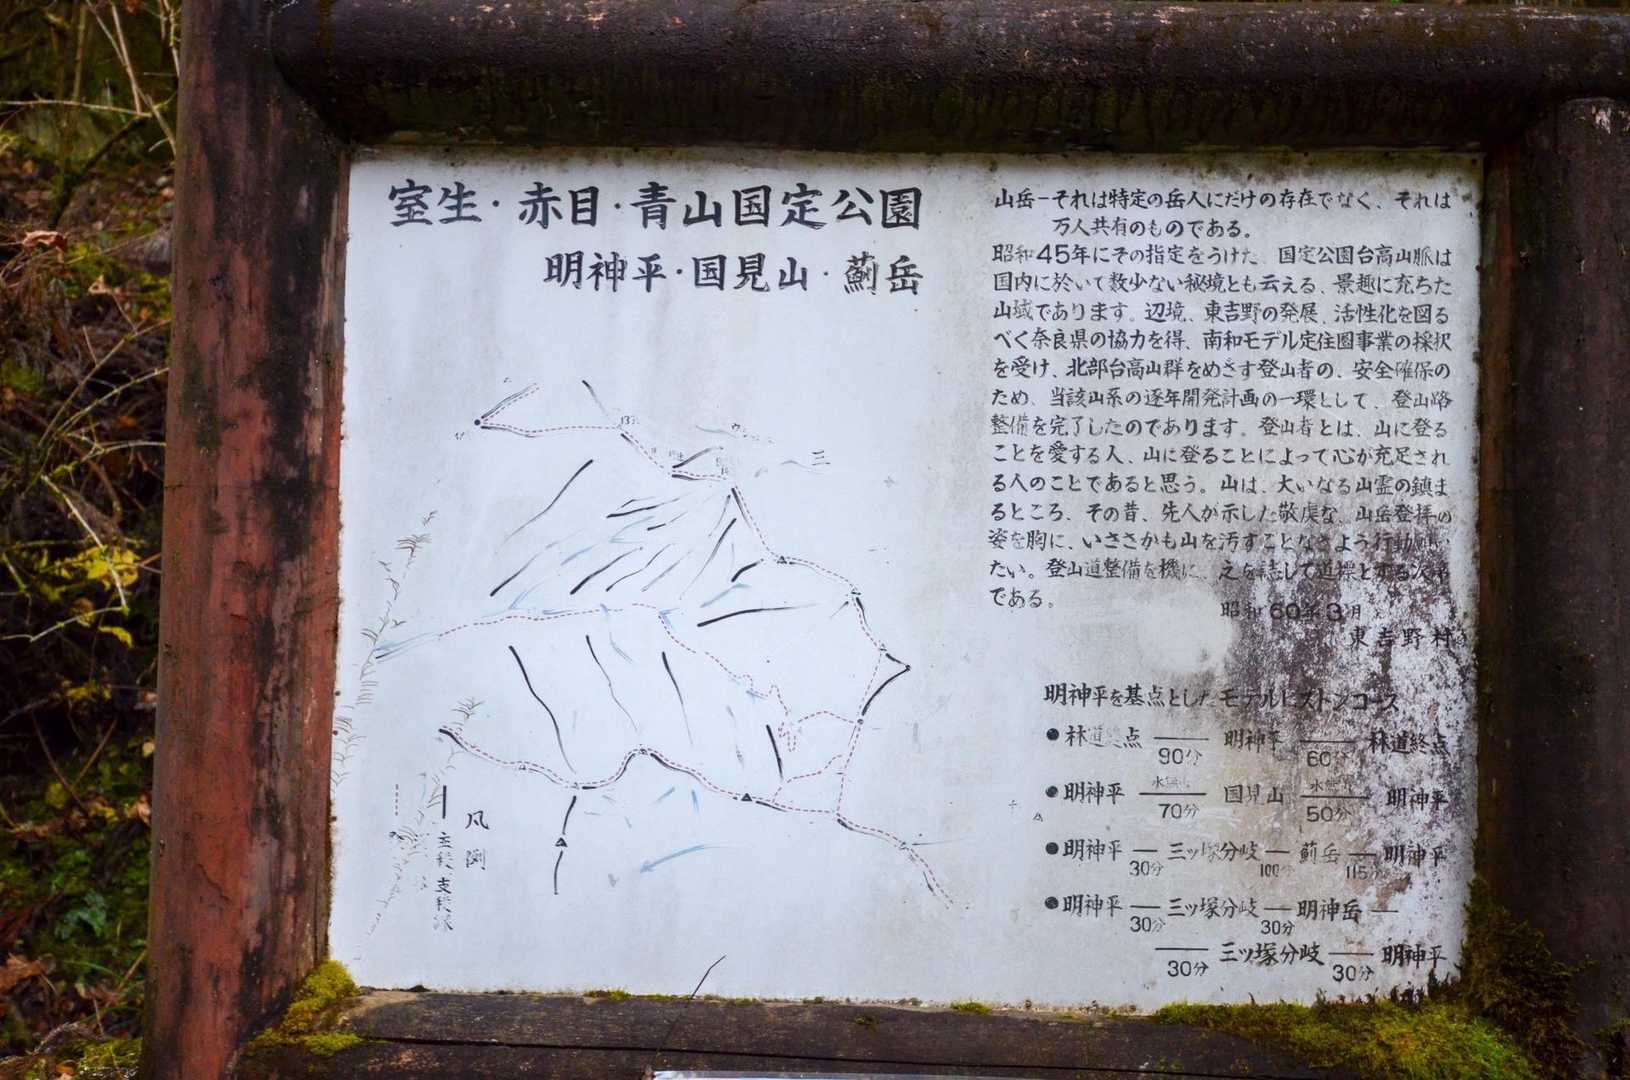 室生・赤目・青山国定公園
明神平・国見山・薊岳
山岳ーそれは特定の岳人にだけの存在でなく、それは
万人共有のものである。
昭和45年にその指定をうけた 国定公園台高山脈は
国内に於いて数少ない秘境とも云える、景趣に充ちた
山域であります。辺境、東吉野の発展、活性化を図る
べく奈良県の協力を得、南和モデル定住圏事業の採択
を受け、北部台高山群をめざす登山者の、安全確保の
ため、当該山系の逐年開発計画の一環として、登山路
整備を完了したのであります。登山者とは、山に登る
ことを愛する人、山に登ることによって心が充足され
る人のことであると思う。山は、大いなる山霊の鎮ま
るところ、その昔、先人が示した敬虔な、山岳登拝の
姿を胸に、いささかも山を汚すことなきよう行動
たい。登山道整備を機に、之を誌して道標とする次第
である。
昭和60年3月
東吉野村
明神平を基点としたモデルピストンコース
●林道終点 ― 90分 明神平 ― 60分 林道終点
●明神平 ― 70分 国見山 ― 50分 明神平
●明神平 ― 30分 三ッ塚分岐 ― 100分 薊岳 ― 115分 明神平
●明神平 ― 30分 三ッ塚分岐 ― 30分 明神岳 ―
― 30分 三ッ塚分岐 ― 30分 明神平
凡例